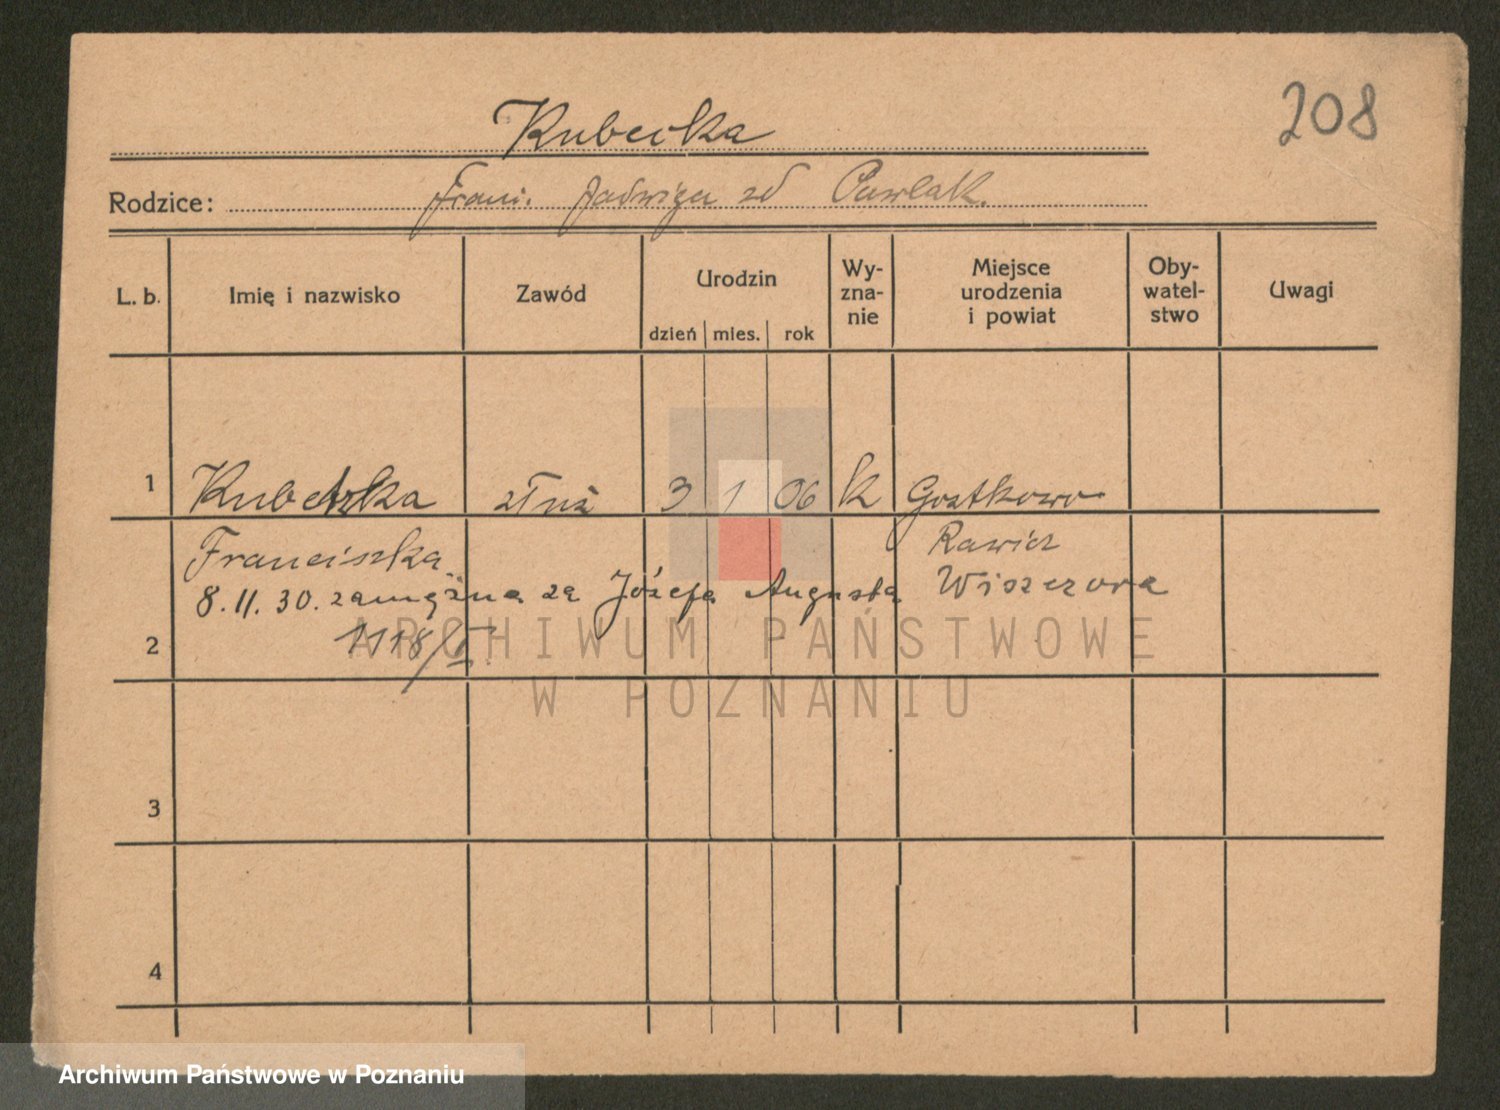 208
Kubecka
Rodzice: Frani. Jadwiga zd Pawlak.
L. b. Imię i nazwisko Zawód Urodzin Wy- Miejsce Oby- Uwagi
zna- urodzenia watel-
nie i powiat stwo
dzień mies. rok
1 służ 3 1 06 k Gostkowo
Franciszka Rawicz
8.11.30. zamężna za Józefa Augusta
2 1118/
3
4
ARCHIWUM PAŃSTWOWE
W POZNANIU
Archiwum Państwowe w Poznaniu